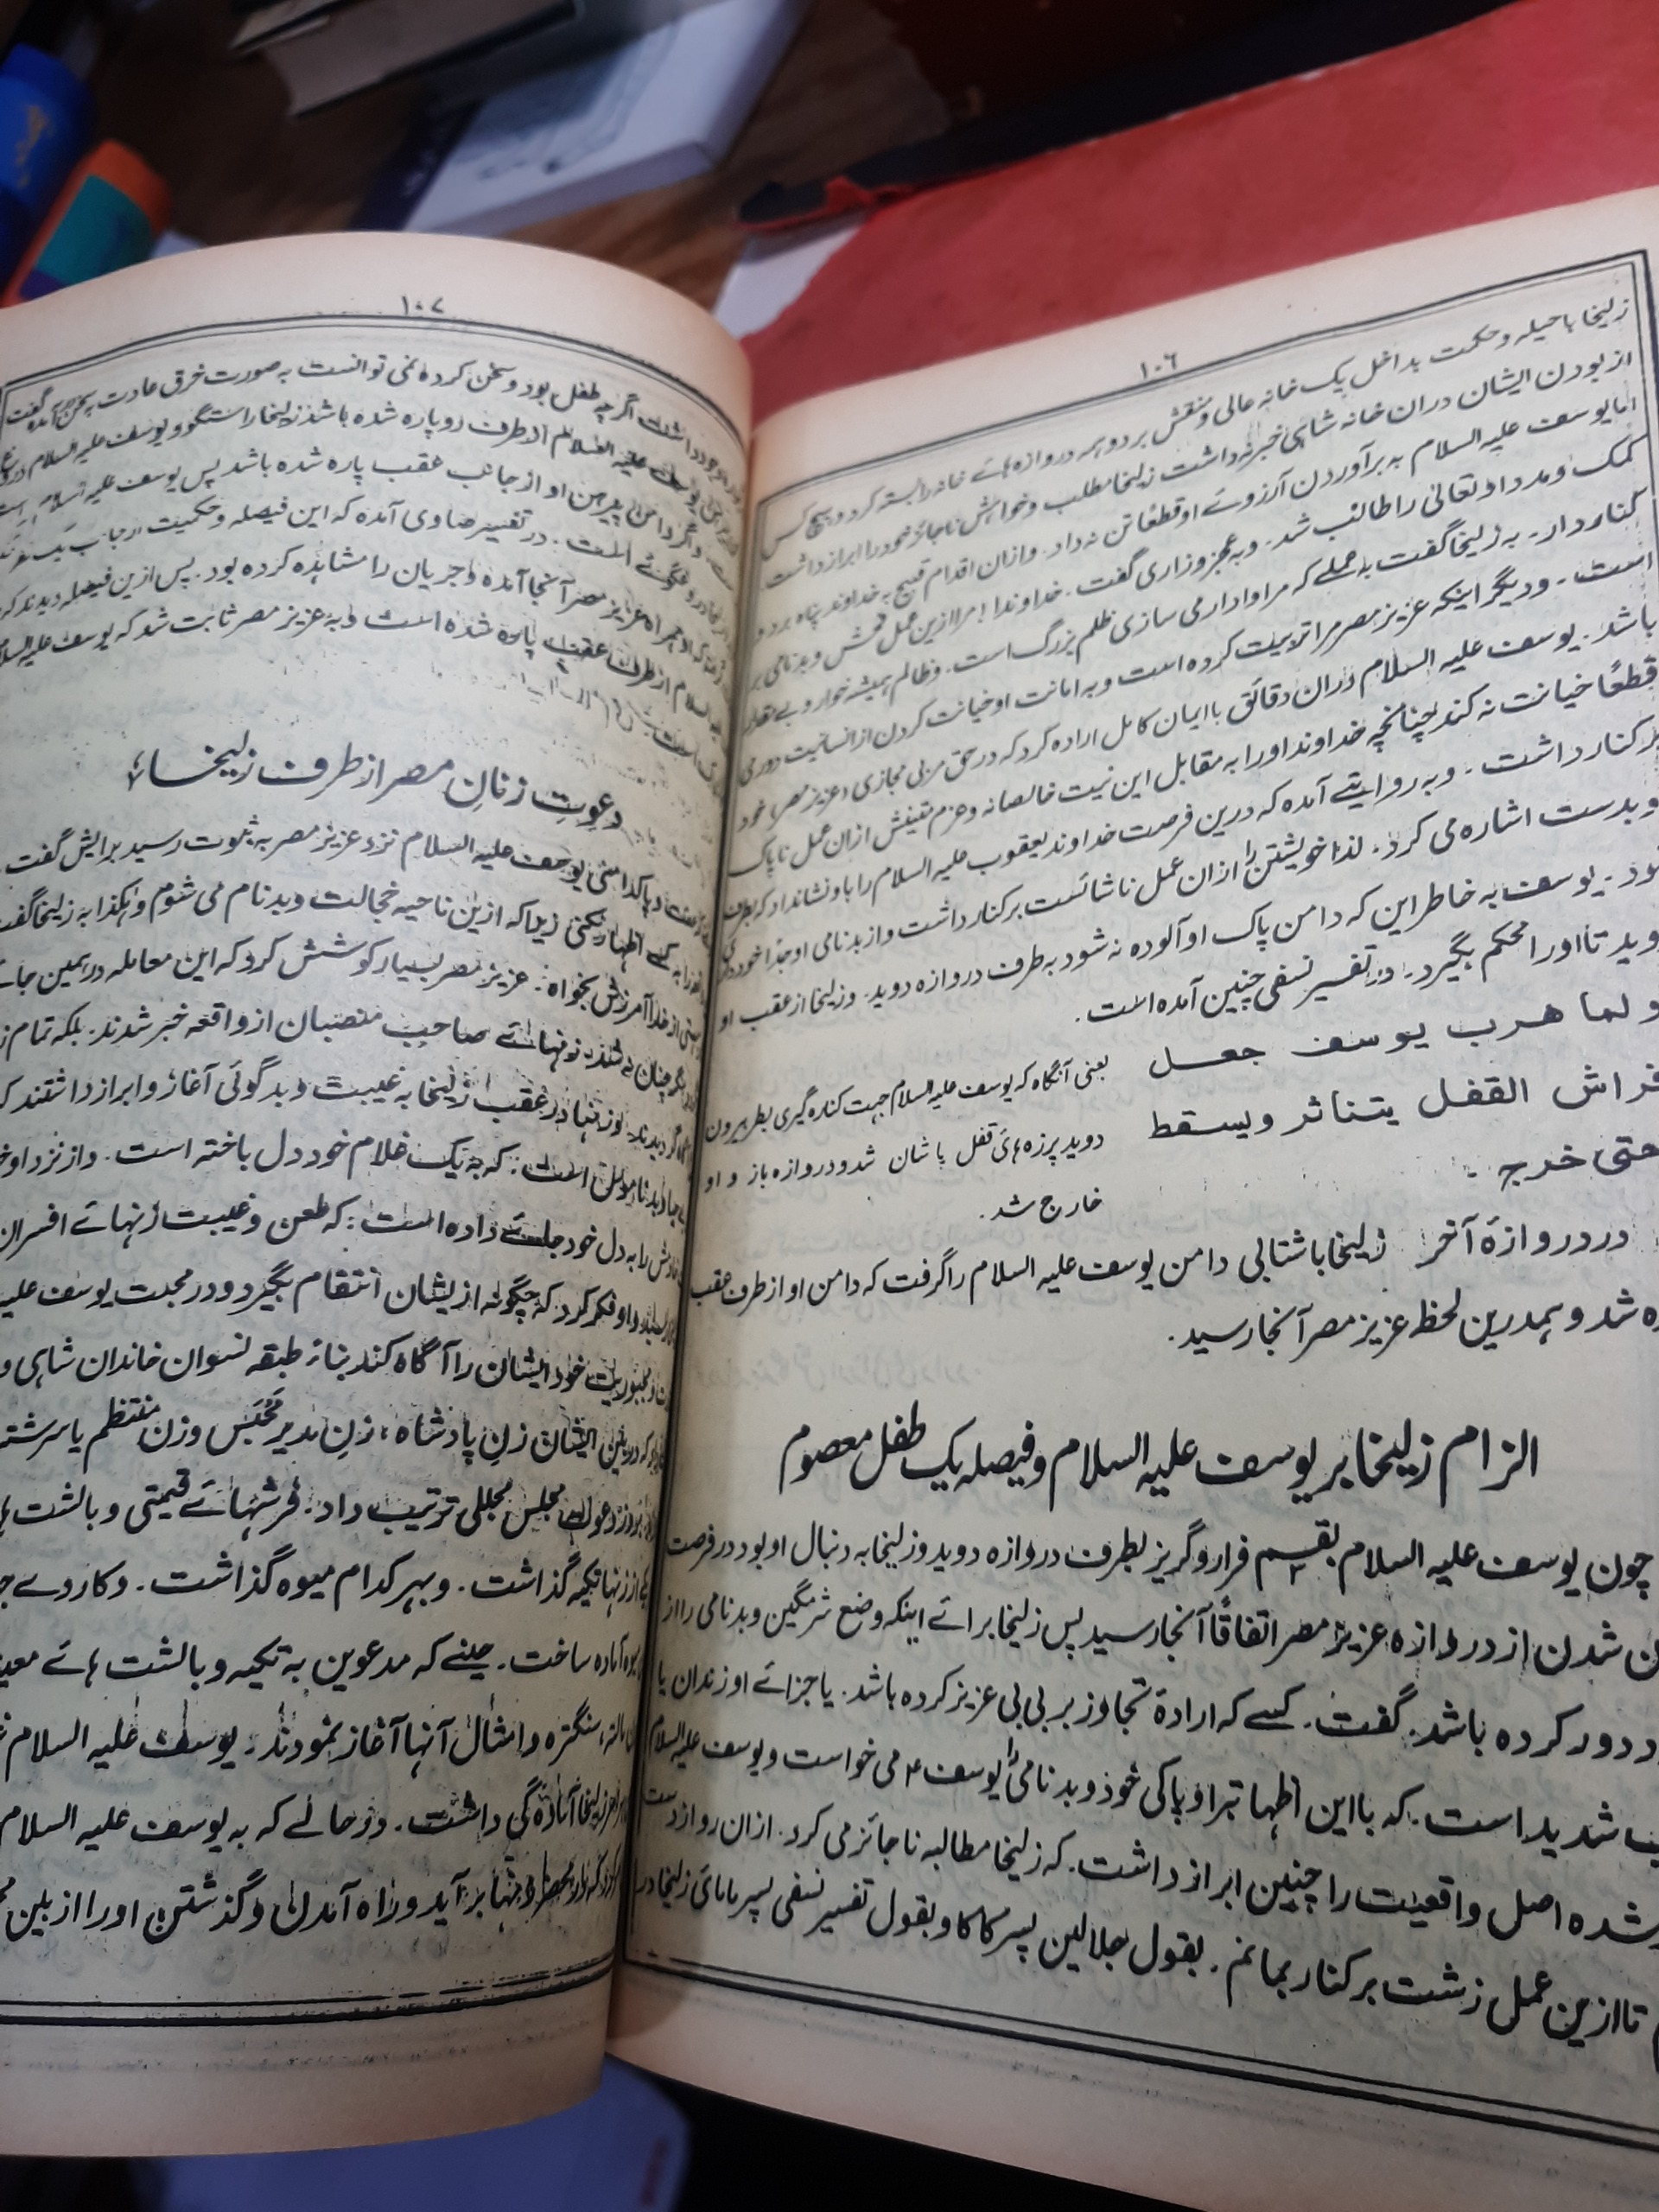 ۱۰۶
زلیخا با حیله و حکمت بداخل یک خانه عالی و منقش بردو همه دروازه هائے خانه را بسته کرد و هیچ کس
از بودن ایشان دران خانه شاہی خبر نداشت زلیخا مطلب و خواہش ناجائز خود را ابراز داشت
اما یوسف علیہ السلام به برآوردن آرزوئے او قطعًا تن نه داد. وازان اقدام قبیح به خداوند پناہ برد و
کمک و مدد او تعالیٰ را طالب شد. و به عجز و زاری گفت. خداوندا! مرا ازین عمل فحش و بدنامی بر
کنار دار۔ به زلیخا گفت به عملے که مرا وادار می سازی ظلم بزرگ است. و ظالم ہمیشه خوار و بے
است۔ و دیگر اینکه عزیز مصر مرا تربیت کرده است و به امانت او خیانت کردن از انسانیت دوری
باشد. یوسف علیہ السلام دران دقائق با ایمان کامل اراده کرد که در حق مربی مجازی (عزیز مصر) خود
قطعًا خیانت نه کند چنانچه خداوند او را به مقابل این نیت خالصانه و عزم متینش ازان عمل ناپاک
بر کنار داشت۔ و به روایتے آمده که درین فرصت خداوند یعقوب علیہ السلام را باو نشانداد که بطرف
و بدست اشاره می کرد. لذا خویشتن را ازان عمل ناشائست بر کنار داشت و از بدنامی او جدا خود
بود۔ یوسف به خاطر این که دامن پاک او آلوده نه شود به طرف دروازه دوید. و زلیخا از عقب او
دوید تا او را محکم بگیرد. در تفسیر نسفی چنین آمده است.
ولما هرب یوسف جعل
فراش القفل یتناثر ویسقط
حتی خرج.
یعنی آنگاه که یوسف علیہ السلام جهت کناره گیری بطر بیرون
دوید پرزه ہائ قفل پاشان شد و دروازه باز و او
خارج شد.
در دروازۀ آخر زلیخا باشتابی دامن یوسف علیہ السلام را گرفت که دامن او از طرف عقب
ره شد و ہمدرین لحظ عزیز مصر آنجا رسید.
الزام زلیخا بر یوسف علیہ السلام و فیصله یک طفل معصوم
چون یوسف علیہ السلام بقسم فرار و گریز بطرف دروازه دوید و زلیخا به دنبال او بود در فرصت
ن شدن از دروازه عزیز مصر اتفاقًا آنجا رسید پس زلیخا برائے اینکه وضع شرمگین و بدنامی را از
د دور کرده باشد. گفت. کسے که ارادۀ تجاوز بر بی بی عزیز کرده باشد. یا جزائے او زندان یا
ب شدید است. که بااین اظهار پاکی خود و بدنامی یوسف ؑ می خواست و یوسف علیہ السلام
شده اصل واقعیت را چنین ابراز داشت. که زلیخا مطالبه ناجائز می کرد. ازان رو از دست
تا ازین عمل زشت بر کنار بمانم. بقول جلالین پسر کاکا و بقول تفسیر نسفی پسر مامائ زلیخا در
۱۰۷
داشت اگرچه طفل بود و سخن کرده نمی توانست به صورت خرق عادت بسخن آمده گفت
یوسف علیہ السلام از طرف رو پاره شده باشد زلیخا راستگو و یوسف علیہ السلام دروغ
است، و اگر دامن پیرهن او از جانب عقب پاره شده باشد پس یوسف علیہ السلام
است. در تفسیر صاوی آمده که این فیصله و حکمیت از جانب یک
که او همراه عزیز مصر آنجا آمده و جریان را مشاہده کرده بود. پس ازین فیصله دیدند که
السلام از طرف عقب پاره شده است و به عزیز مصر ثابت شد که یوسف علیہ السلا
دعوتِ زنانِ مصر از طرف زلیخا
و پاکدامنی یوسف علیہ السلام نزد عزیز مصر به ثبوت رسید برایش گفت
را به کسے اظہار نکنی زیرا که ازین ناحیه خجالت و بدنام می شوم و ہکذا به زلیخا گفت
از خدا آمرزش بخواہ: عزیز مصر بسیار کوشش کرد که این معامله در ہمین جا
چنان نه شد، زنہائے صاحب منصبان از واقعه خبر شدند. بلکه تمام ز
گردیدند. زنہا در عقب زلیخا به غیبت و بدگوئی آغاز و ابراز داشتند ک
است: که به یک غلام خود دل باخته است. و از نزد او خ
را به دل خود جائے داده است: که طعن و غیبت زنہائے افسران
او فکر کرد که چگونه از ایشان انتقام بگیرد و در محبت یوسف علیہ
مجبوریت خود ایشان را آگاه کند بناءً طبقه نسوان خاندان شاہی و
ایشان زنِ پادشاه، زنِ مدیر محبس و زن منتظم یا سرشته
مجلس مجللی ترتیب داد. فرشہائے قیمتی و بالشت ہا
از زنہا تکیه گذاشت. و بہر کدام میوه گذاشت. و کاردے ج
آماده ساخت. حینے که مدعوین به تکیه و بالشت ہائے معین
مالته، سنگتره و امثال آنہا آغاز نمودند. یوسف علیہ السلام
زلیخا آمادگی داشت. در حالے که به یوسف علیہ السلام
برآید و راه آمدن و گذشتن او را از بین